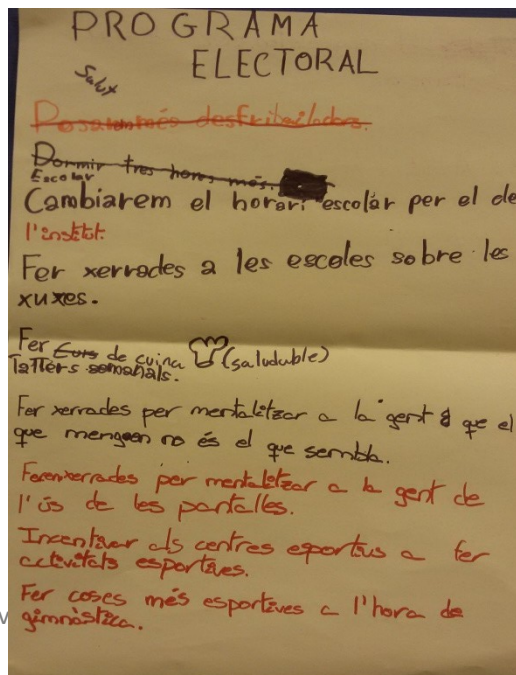 PROGRAMA
ELECTORAL
Salut
Posarem més desfribailadors.
Dormir tres hores més.
Escolar
Cambiarem el horari escolar per el de
l'institut.
Fer xerrades a les escoles sobre les
xuxes.
Fer Curs de cuina (saluduble)
Tallers semanals.
Fer xerrades per mentalitzar a la gent que el
que mengen no és el que sembla.
Ferem xerrades per mentalitzar a la gent de
l'ús de les pantalles.
Incentivar als centres esportius a fer
activitats esportives.
Fer coses més esportives a l'hora de
gimnàstica.